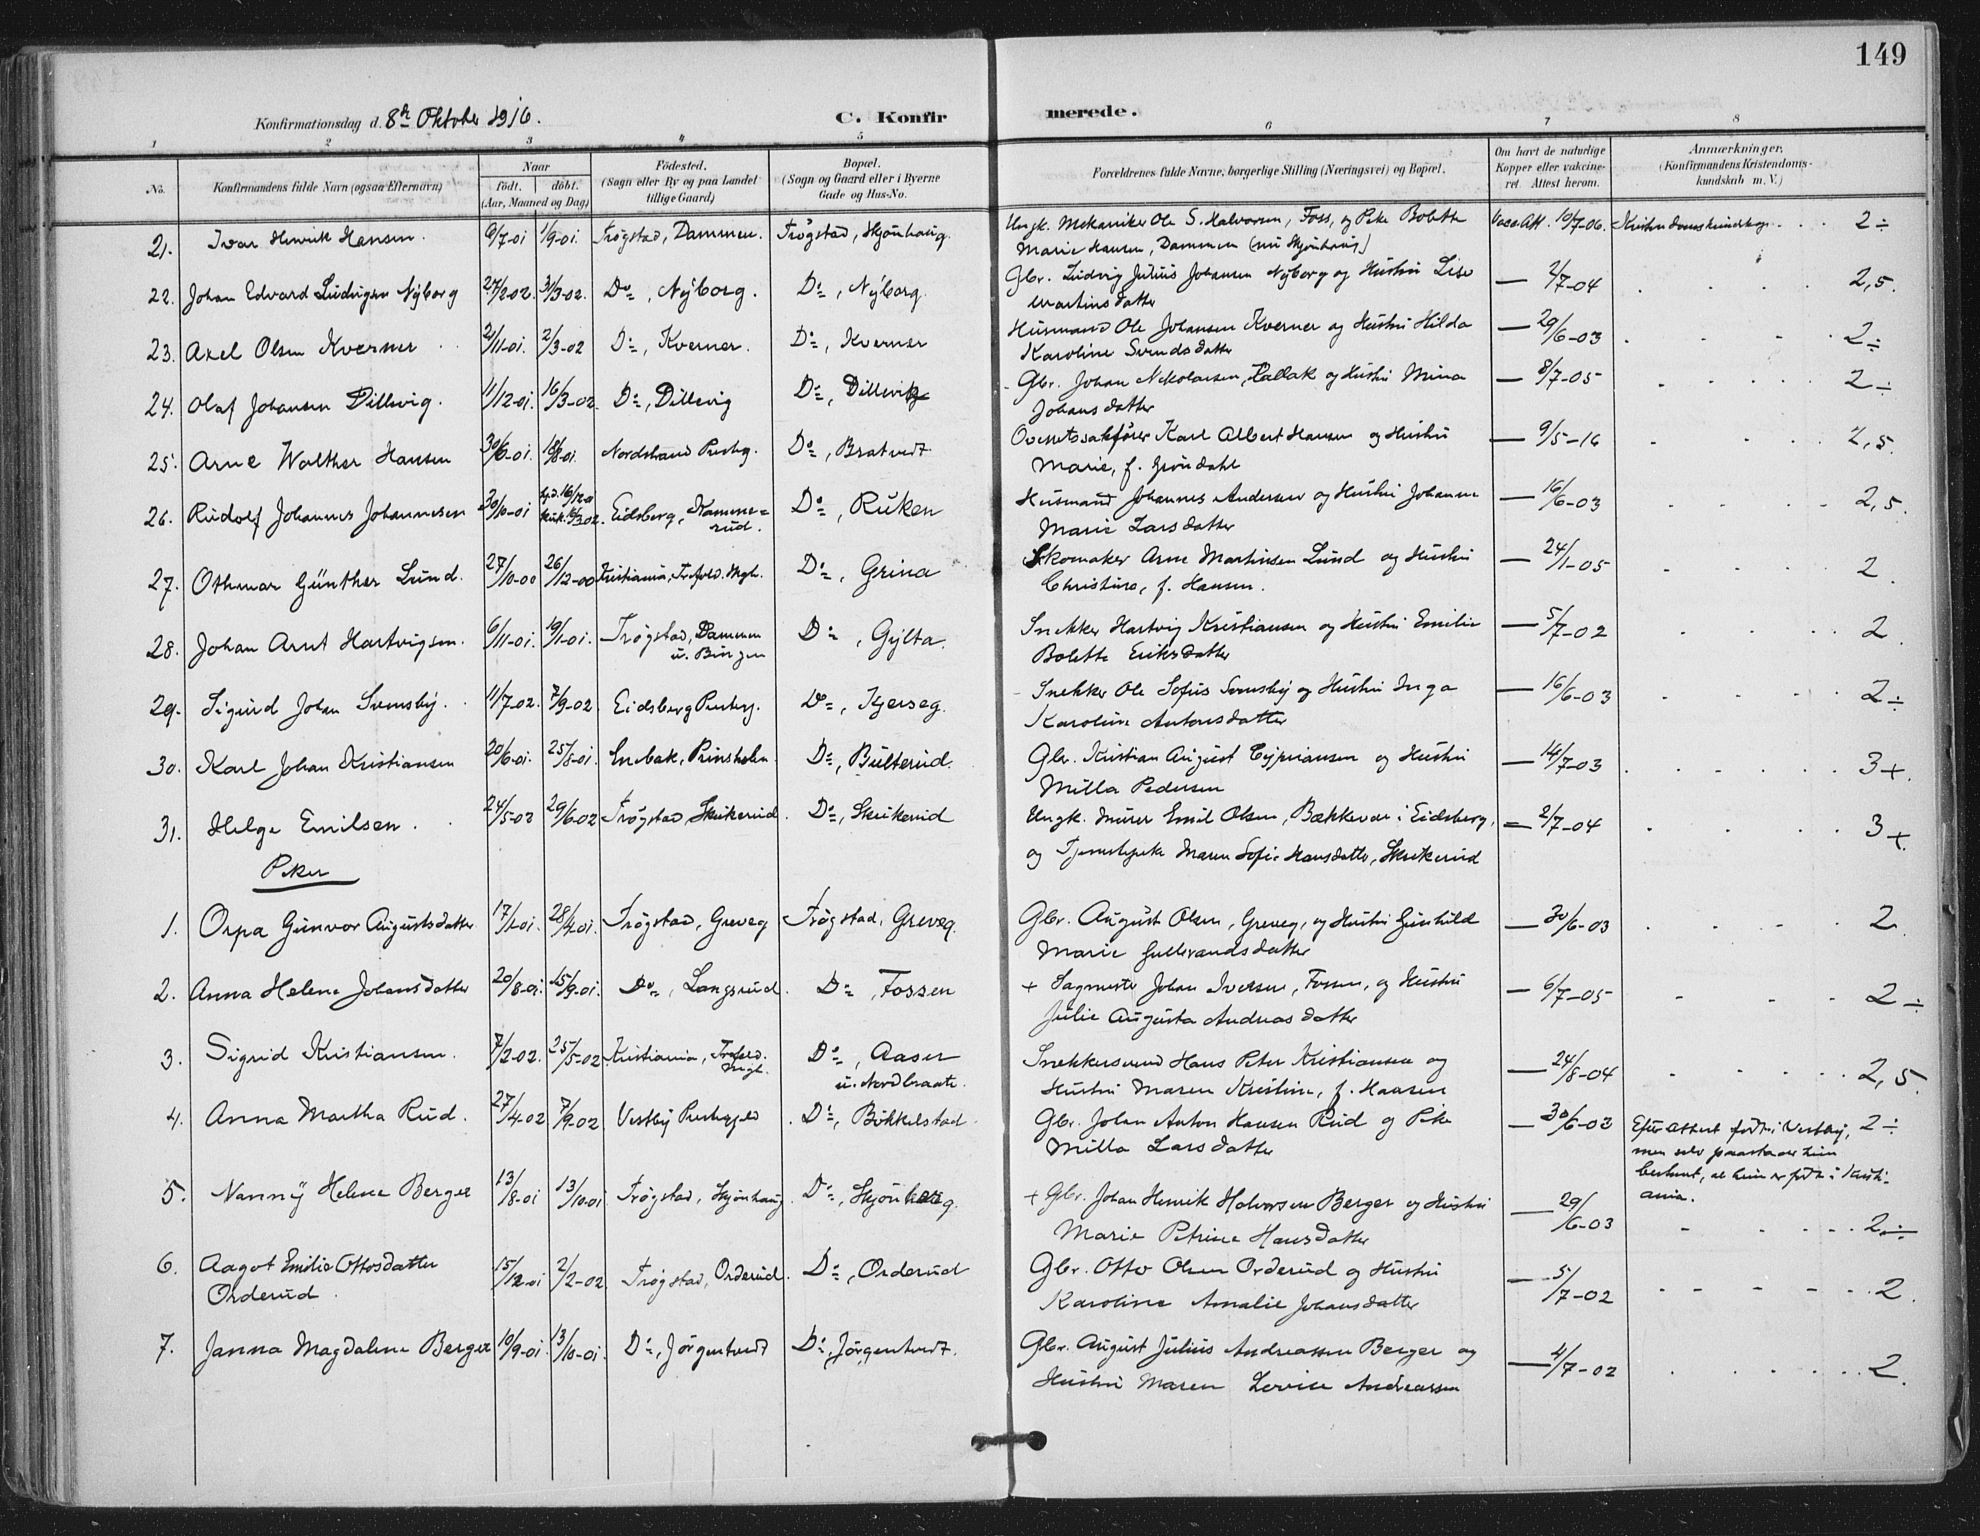 149
Konfirmationsdag d. 8de Oktober 1916. C. Konfirmerede.
1 2 3 4 5 6 7 8
No. Konfirmandens fulde Navn (ogsaa Efternavn) Naar født, døbt. (Aar, Maaned og Dag) Fødested. (Sogn eller By og paa Landet tillige Gaard) Bopæl. (Sogn og Gaard eller i Byerne Gade og Hus-No. Forældrenes fulde Navne, borgerlige Stilling (Næringsvei) og Bopæl. Om havt de naturlige Kopper eller vakcineret. Attest herom. Anmærkninger. (Konfirmandens Kristendomskundskab m. V.)
21. Ivar Henrik Hansen. 9/7-01 1/9-01. Trøgstad, Dammen. Trøgstad, Skjønhaug. Ungk. Mekaniker Ole S. Halvorsen, Foss, og Pike Bolette Vacc. Att. 10/7-06. Kristendomskundskap 2÷
Marie Hansen, Dammen (nu Skjønhaug)
22. Johan Edvard Ludvigsen Nyborg 27/2-02. 31/3-02. Do, Nyborg. Do, Nyborg. Gbr. Ludvig Julius Johansen Nyborg og Hustru Lise — 2/7-04 2,5.
Martinsdatter
23. Axel Olsen Kverner 21/11-01. 2/3-02 Do, Kverner. Do, Kverner Husmand Ole Johansen Kverner og Hustru Hilda — 29/6-03 2÷
Karoline Svendsdatter
24. Olaf Johansen Dillevig. 11/12-01. 16/3-02. Do, Dillevig Do, Dillevik Gbr. Johan Nikolaisen, Kallak og Hustru Mina — 8/7-05 2÷
Johansdatter
25. Arne Walther Hansen 30/6-01. 18/8-01. Nordstrand Prestg. Do, Bratvedt Overretssakfører Karl Albert Hansen og Hustru — 9/5-16 2,5.
Marie, f. Grøndahl
26. Rudolf Johannes Johannesen 30/10-01 Eidsberg, Kammerud. Do, Ruken Husmand Johannes Andersen og Hustru Johanne — 16/6-03 2,5.
Marie Larsdatter
27. Othmar Günther Lund. 27/10-00 26/12-00 Kristiania, Trefold. Mgh. Do, Grina Skomaker Arne Martinsen Lund og Hustru — 24/1-05 2.
Christine, f. Hansen.
28. Johan Arnt Hartvigsen. 6/11-01. 19/1-01. Trøgstad, Dammen Do, Gylta. Snekker Hartvig Kristiansen og Hustru Emilie — 5/7-02 2
u. Bingen Bolette Eriksdatter
29. Sigurd Johan Svensby. 11/7-02. 7/9-02 Eidsberg Prestg. Do, Kjerseg. Snekker Ole Sofus Svensby og Hustru Inga — 16/6-03 2÷
Karoline Antonsdatter
30. Karl Johan Kristiansen 20/6-01. 25/8-01. Enebak, Prinsholm Do, Bulterud. Gbr. Kristian August Cypriansen og Hustru — 14/7-03 3+.
Milla Pedersen
31. Helge Emilsen. 24/5-02 29/6-02 Trøgstad, Skukerud. Do, Skukerud Ungk. Murer Emil Olsen, Bækkevar i Eidsberg, 2/7-04 3+.
og Tjenestepike Maren Sofie Hansdatter, Skukerud
Piker
1. Orpa Gunvor Augustsdatter 17/1-01. 28/4-01. Trøgstad, Greveg Trøgstad, Greveg. Gbr. August Olsen, Greveg, og Hustru Gunhild — 30/6-03 2
Marie Gulbrandsdatter
2. Anna Helene Johansdatter 20/8-01. 15/9-01. Do, Langsrud. Do, Fossen + Sagmester Johan Iversen, Fossen, og Hustru — 6/7-05 2÷
Julie Augusta Andreasdatter
3. Sigrid Kristiansen. 7/2-02. 25/5-02. Kristiania, Trefold. Mgh. Do, Aaser Snekkersvend Hans Peter Kristiansen og — 24/8-04 2,5.
u. Nordbraate. Hustru Maren Kristine, f. Haasen
4. Anna Martha Rud. 27/4-02 7/9-02 Vestby Prestegjeld Do, Bøkkelstad. Gbr. Johan Anton Hansen Rud og Pike — 30/6-03 Efter attest født i Vestby, 2÷
Milla Larsdatter men selv paastaar hun
bestemt, at hun er født i Kristi-
ania.
5. Nanny Helene Berger 13/8-01 13/10-01 Trøgstad, Skjønhaug Do, Skjønhaug. + Gbr. Johan Henrik Halvorsen Berger og Hustru — 29/6-03 2÷
Marie Petrine Hansdatter
6. Aagot Emilie Ottosdatter 15/12-01 2/2-02 Trøgstad, Orderud. Do, Orderud Gbr. Otto Olsen Orderud og Hustru — 5/7-02 2.
Orderud. Karoline Amalie Johansdatter
7. Janna Magdalene Berger 10/9-01. 13/10-01. Do, Jørgentvedt Do, Jørgentvedt. Gbr. August Julius Andreassen Berger og — 4/7-02 2.
Hustru Maren Lovise Andreassen